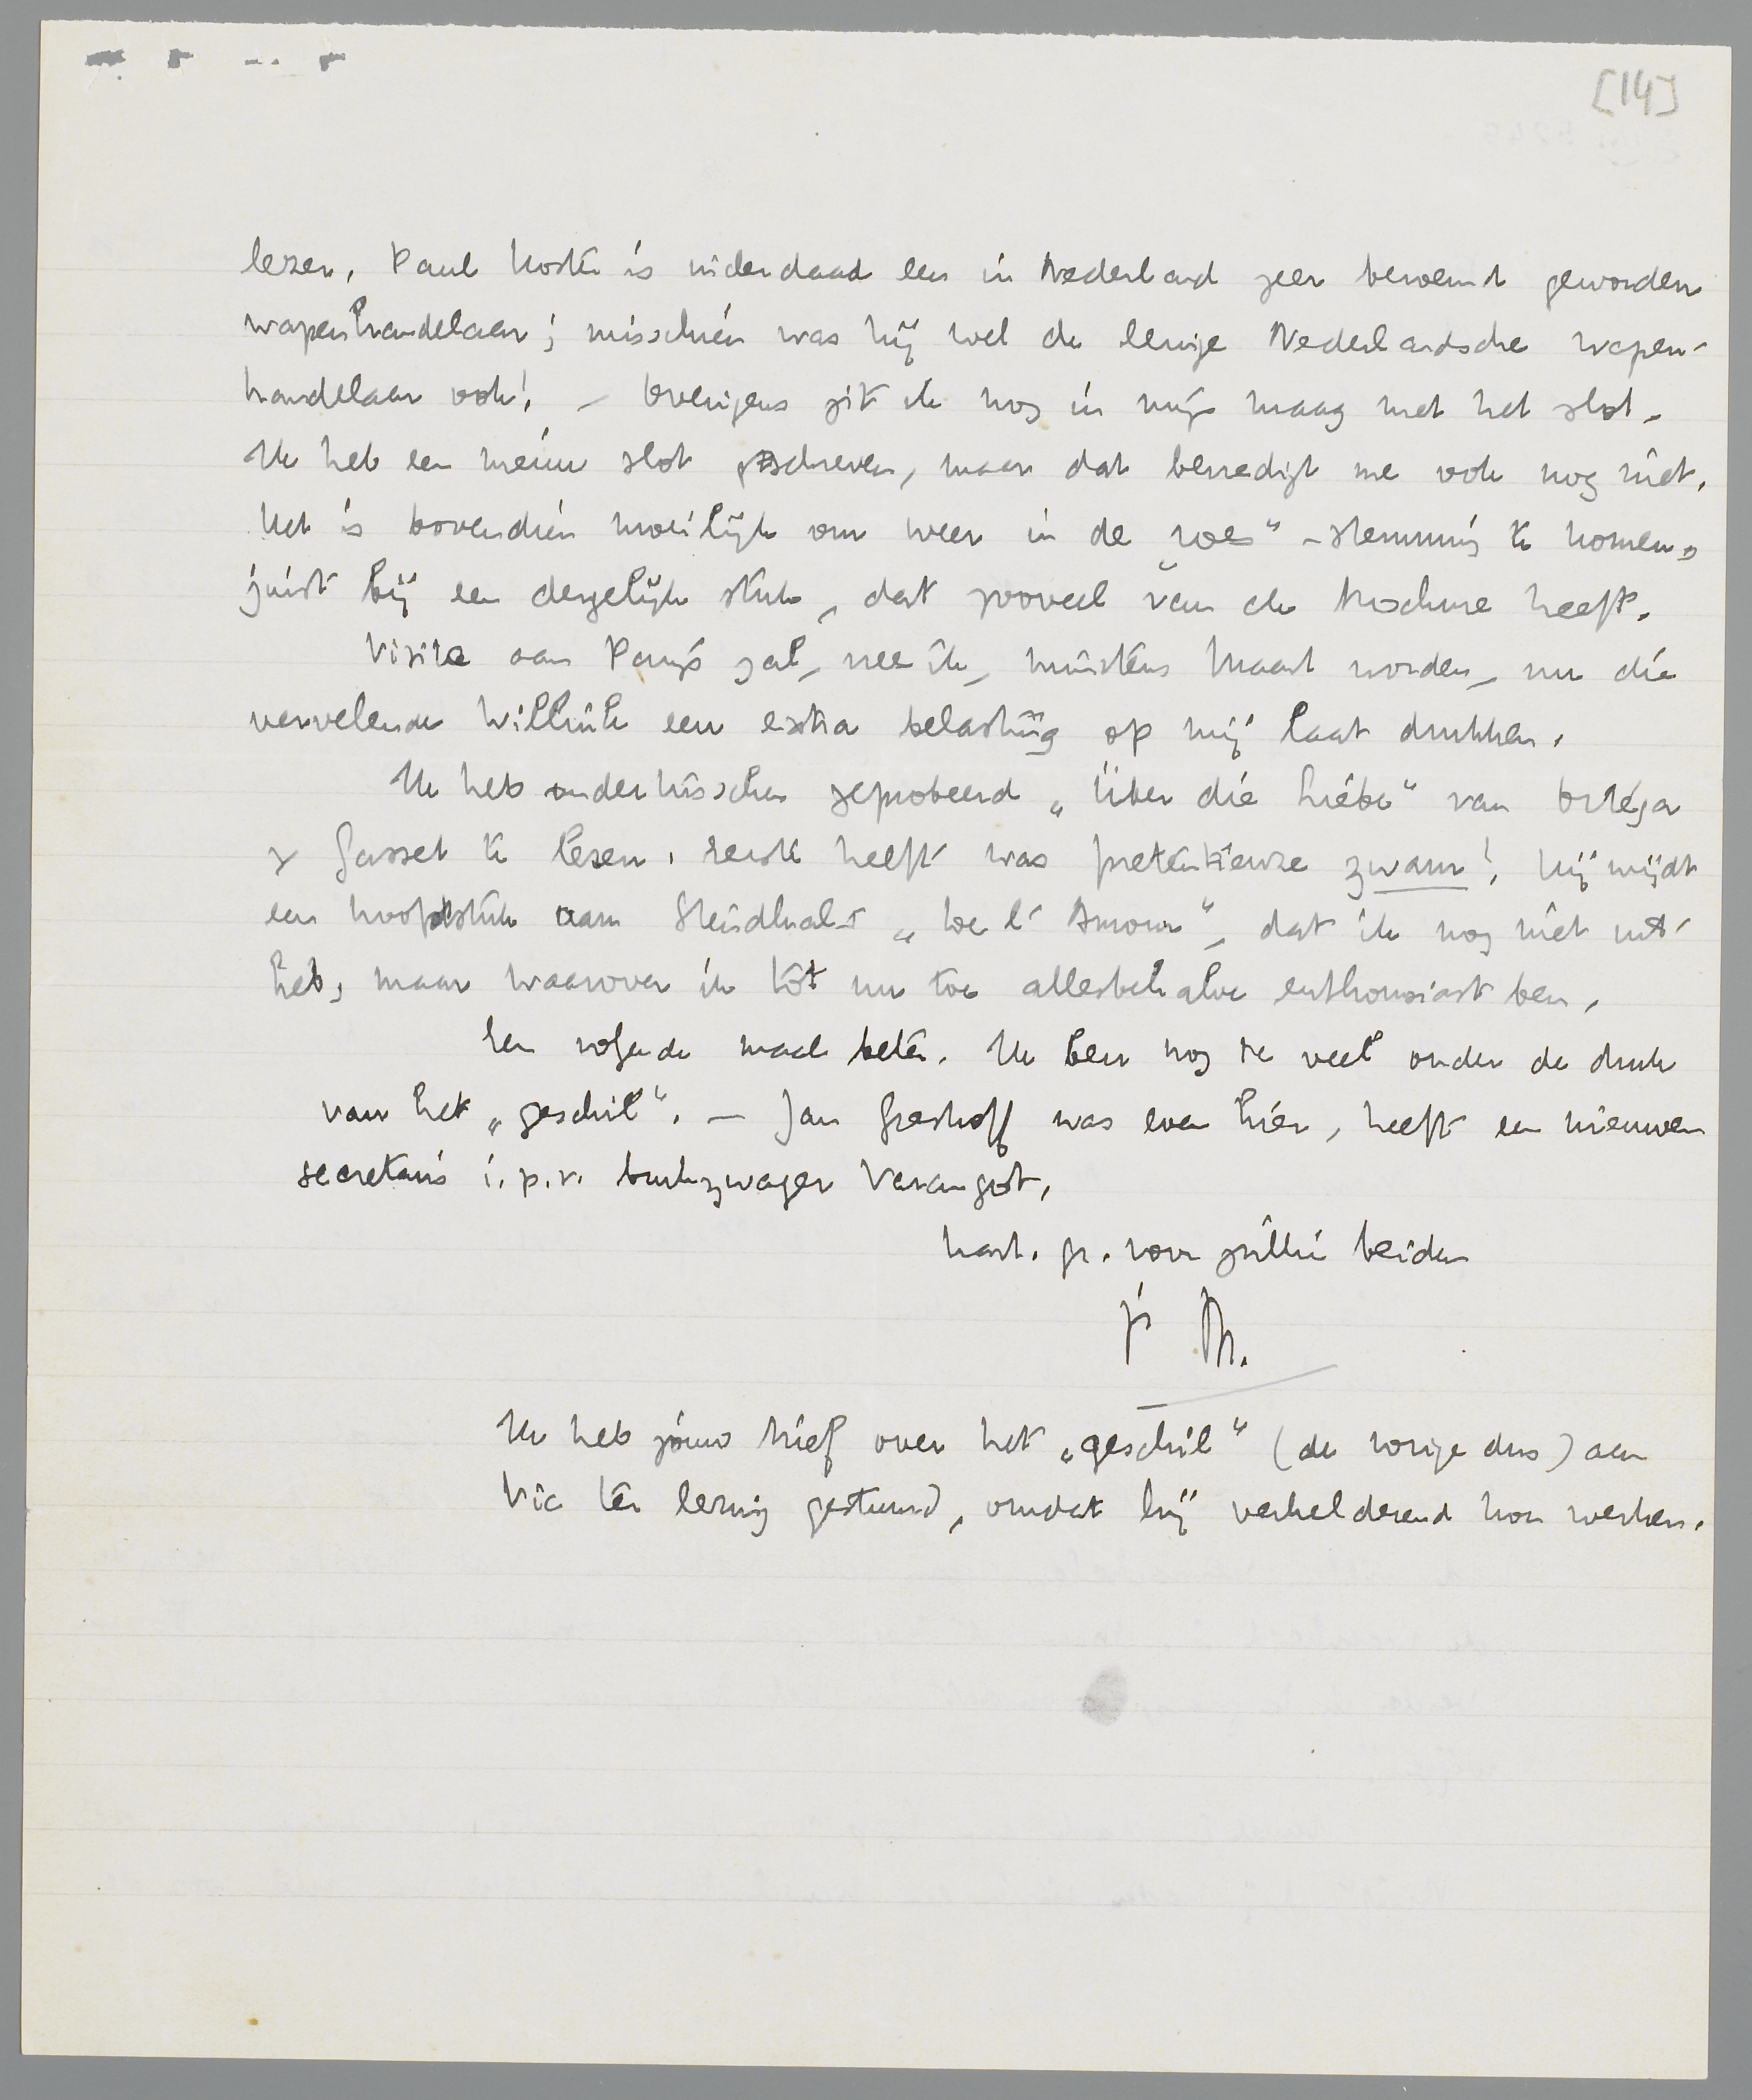 [14]
lezen. Paul Koster is inderdaad een in Nederland zeer beroemd geworden
wapenhandelaar; misschien was hij wel de eenige Nederlandsche wapen-
handelaar ook! – Overigens zit ik nog in mijn maag met het slot.
Ik heb een nieuw slot geschreven, maar dat bevredigt me ook nog niet.
Het is bovendien moeilijk om weer in de „roes"-stemming te komen,
juist bij een dergelijk stuk, dat zooveel van de brochure heeft.
Visite aan Parijs zal, vrees ik, minstens Maart worden, nu die
vervelende Willink een extra belasting op mij laat drukken.
Ik heb ondertusschen geprobeerd „Über die Liebe" van Ortega
y Gasset te lezen. Eerste helft was pretentieuze zwam! Hij wijdt
een hoofdstuk aan Stendhal's „De l'Amour", dat ik nog niet uit
heb, maar waarover ik tot nu toe allesbehalve enthousiast ben.
Een volgende maal beter. Ik ben nog te veel onder de druk
van het „geschil". – Jan Greshoff was even hier, heeft een nieuwen
secretaris i.p.v. zwager Varangot.
hart. gr. voor jullie beiden
je M.
Ik heb jouw brief over het „geschil" (de vorige dus) aan
Vic ter lezing gestuurd, omdat hij verhelderend kon werken.